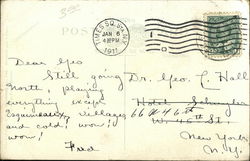 3.00
TIMES SQ. STA.
JAN 6
4 30 PM
1911
POST
Dear Geo
Still going
North, playing
everything except
villages
and cold! wow!
wow!
Fred
Dr. Geo. C. Hall
Hotel
66 W 46th St.
New York
N.Y.